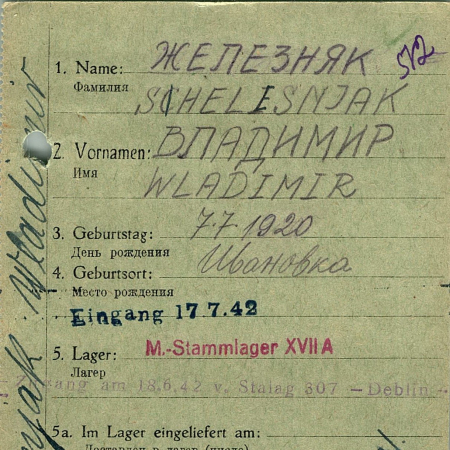 1. Name: ЖЕЛЕЗНЯК 512
Фамилия SCHELESNJAK
2. Vornamen: ВЛАДИМИР
Имя
WLADIMIR
3. Geburtstag: 7.7.1920
День рождения
4. Geburtsort: Ивановка
Место рождения
Eingang 17.7.42
5. Lager: M.-Stammlager XVII A
Лагер
Zugang am 18.6.42 v. Stalag 307 – Deblin –
5a. Im Lager eingeliefert am:
Доставлен в лагер (число)
Wladimir